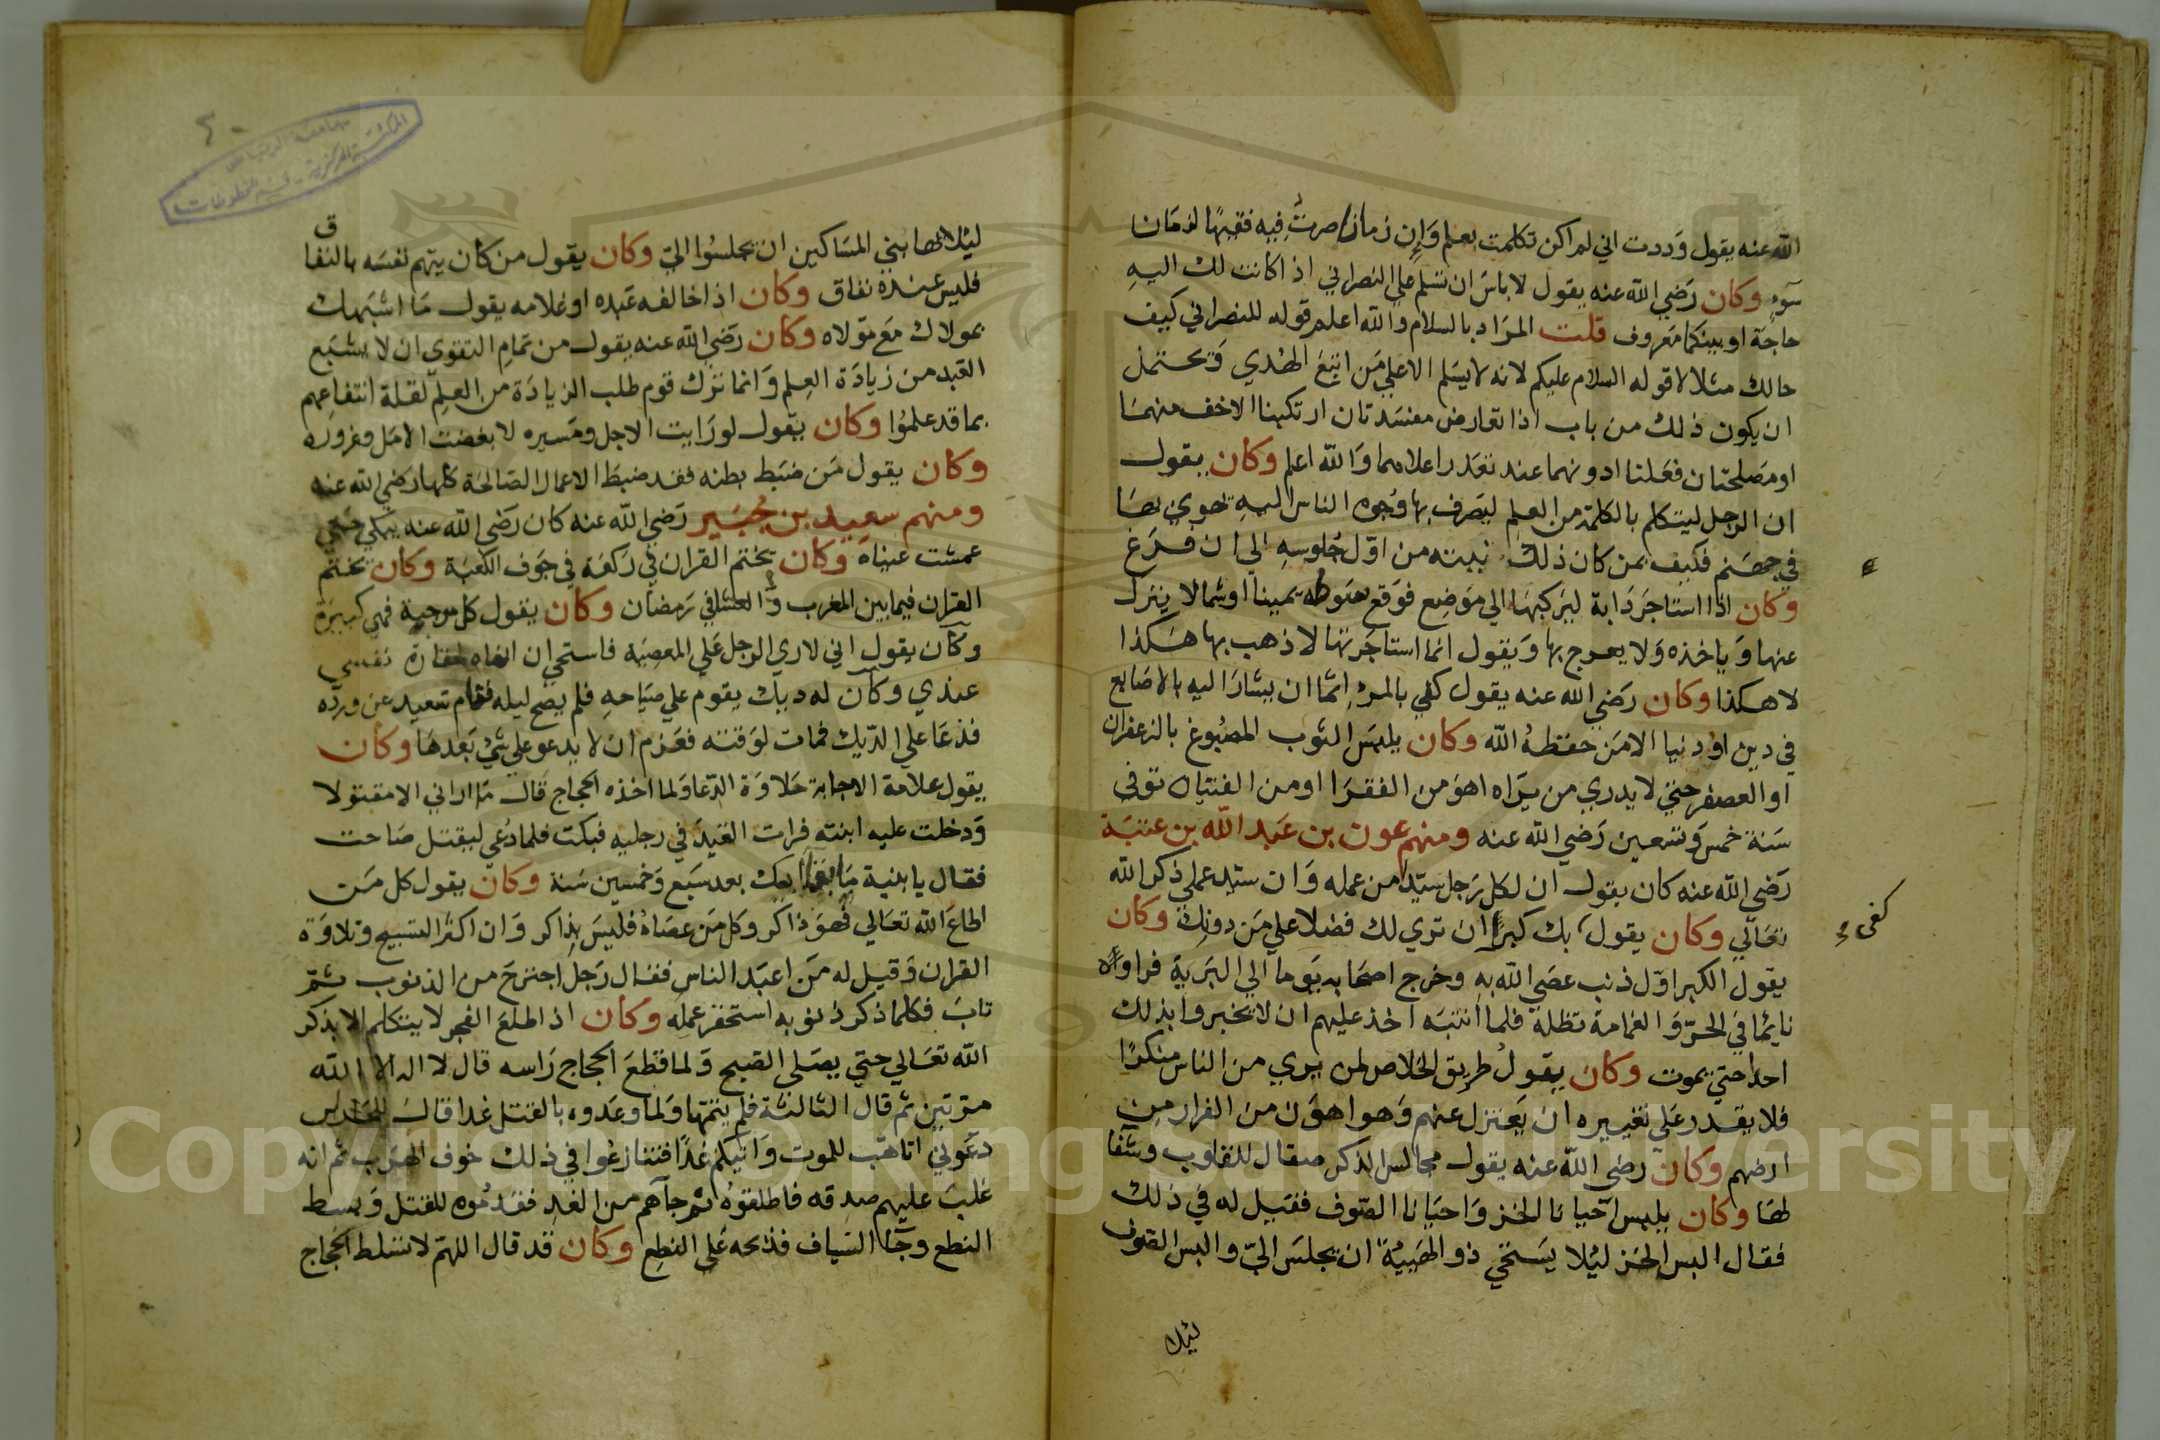 الله عنه يقول وَددت اني لم اكن تكلمت بعلم وَاِن زمانا صرتُ فيه فقيهًا لزمَان
سَوءٍ وكان رَضي الله عنه يقول لا باسَ ان تسَلم علي النصراني اذا كانت لك اليهِ
حاجَة او بينكما مَعروف قلت المرَاد بالسلام والله اعلم قوله للنصراني كيف
حالك مثلا لا قوله السلام عليكم لانه لا يسَلم الا علي مَن اتبَعَ الهُدي وَيحتمل
ان يكون ذلك من باب اذا تعارض مفسَدتان ارتكبنا الاخف منهمَا
او مصَلحتان فعَلنا ادونهما عند تعَدر اعلاهما وَالله اعلم وكان يقول
ان الرجل ليتكلم بالكلمَة من العِلم ليَصَرف بها وُجوه الناس اليهِ تهوي بهَا
في جهَنم فكيف بمن كان ذلك نيته من اوّل جُلوسِهِ الي ان فَرَغ
وكان اذا استاجَر دَابة ليَركبهَا الي مَوَضِع فوَقع سَوَطه يمينا او شمالا ينزل
عنها وَياخذه وَلا يعرج بها وَيَقول انما استاجَرتها لاذهب بها هَكذا
لا هكذا وكان رَضي الله عنه يقول كفي بالمرْءِ اِثمًا ان يشارَ اليه بالاصَابع
في دين اوْ دنيا الا مَن حفظهُ الله وكان يلبسَ الثوب المصْبُوغ بالزعفران
او العصفر حتي لا يدري من يَرَاه اهوَ من الفقرَا او من الفتيان توفى
سَنة خمس وَتسَعين رَضي الله عنه ومنهم عون بن عَبد الله بن عتبَة
رَضي الله عنه كان يقول ان لكل رَجل سيّدا من عمله وَان سيد عملي ذكر الله
تعَالي وكان يقول بك كبرًا ان تري لك فضلا علي مَن دونك وكان
كفى
يقول الكبر اوّل ذنب عصَي الله بهِ وخرج اصحَابه يَوما الي البَرية فراوْه
نايمًا في الحرّ وَالغمامة تظله فلما انتبَه اخذ عليهم ان لا يخبروا بذلك
احدا حتي يموت وكان يقول طريق الخلاص لمن يري من الناس منكرًا
فلا يقدر عَلي تغييره ان يَعتزل عنهم وَهو اهوَن من الفرار من
ارضهم وكان رضي الله عنه يقول مجالس الذكر صقال للقلوب وشفا
لهَا وكان يلبس اَحيانا الخز وَاحيَانا الصَّوف فقيل له في ذلك
فقال البس الخز ليُلا يسَتحي ذو الهَيئة ان يجلسَ اليّ والبس الصوف
ليُلا
ليُلا يهابني المسَاكين ان يجلسُوا اليّ وكان يقول من كان يتهم نفسَه بالنفاق
فليس عندهُ نفاق وكان اذا خالفه عَبده او غلامه يقول مَا اشبَهك
بمولاك مَع مَوَلاه وكان رَضي الله عنه يقول من تمامِ التقوي ان لا يشَبَع
العَبد من زيادَة العِلم وَانما ترَك قوم طلب الزيادَة من العِلم لقلة انتفاعهم
بما قد علمُوا وكان يَقول لو رَايت الاجل ومَسيره لا بغضت الامَل وغروره
وكان يقول مَن ضبَط بطنه فقد ضبط الاعمال الصّالحة كلها رضي الله عنه
ومنهم سعيد بن جُبَير رَضي الله عنه كان رَضي الله عنه يَبكي حَتي
عمشت عيناه وكان يختم القران في رَكعة في جَوَف الكعبَة وكان يختم
القران فيما بين المغرب وَالعشا في رَمضَان وكان يَقول كل موجبة فهي كبيرَة
وَكان يقول اني لاري الرجل عَلي المعصيَة فاستحي ان انهاه لحقارة نفسي
عندي وكان له ديك يقوم علي صيَاحهِ فلم يصَح ليله فقام سَعيد عن ورده
فدعَا علي الدّيك فمات لوَقته فعَزم ان لا يدعو علي شيْ بَعدهَا وكان
يقول علامَة الاجابة حَلاوَة الدّعا وَلما اخذه الحجاج قال مَا اراني الا مقتولا
وَدخلت عليه ابنته فرات القيدَ في رجليهِ فبكت فلما دُعي ليقتل صَاحت
فقال يا بنية مَا بقا ابيك بعد سَبع وَخمسين سَنة وكان يقول كل مَن
اطاعَ الله تعَالي فهوَ ذاكر وَكل مَن عصَاهُ فليسَ بذاكر وَان اكثر التسبيح وَتلاوَة
القران وَقيل له مَن اعبَد الناس فقال رَجل اجترَح من الذنوب ثمّ
تابَ فكلما ذكر ذنوبه استحقر عمله وكان اذا طلعَ الفجر لا يتكلم الا بذكر
الله تعَالي حتي يصَلي الصّبح وَلما قطعَ الحجاج رَاسه قال لا اله الا الله
مَرّتين ثم قال الثالثة فلم يتمّها وَلما وعَدوه بالقتل غدا قال للحَرَس
دعَوني اتاهّب للموت وَاتيكم غدًا فتنازعُوا في ذلك خوف الهرَب ثم انه
غلبَ عليهم صدقه فاطلقوُه ثم جَآهم من الغدِ فقدمُوه للقتل وَبسط
النطع وجآ السّياف فذبحه عَلي النطع وكان قد قال اللهمّ لا تسَلط الحجاج
Copyright © King Saud University